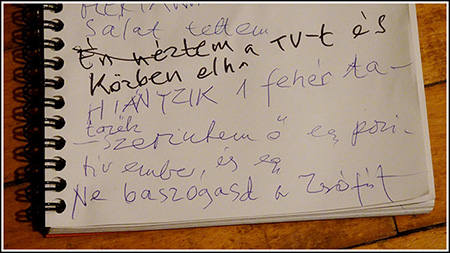 Salat tettem
Én néztem a TV-t és
Közben elh
HIÁNYZIK 1 fehér ta-
- szerintem ő egy pozi-
tív ember, és egy
Ne baszogasd a Zsófit